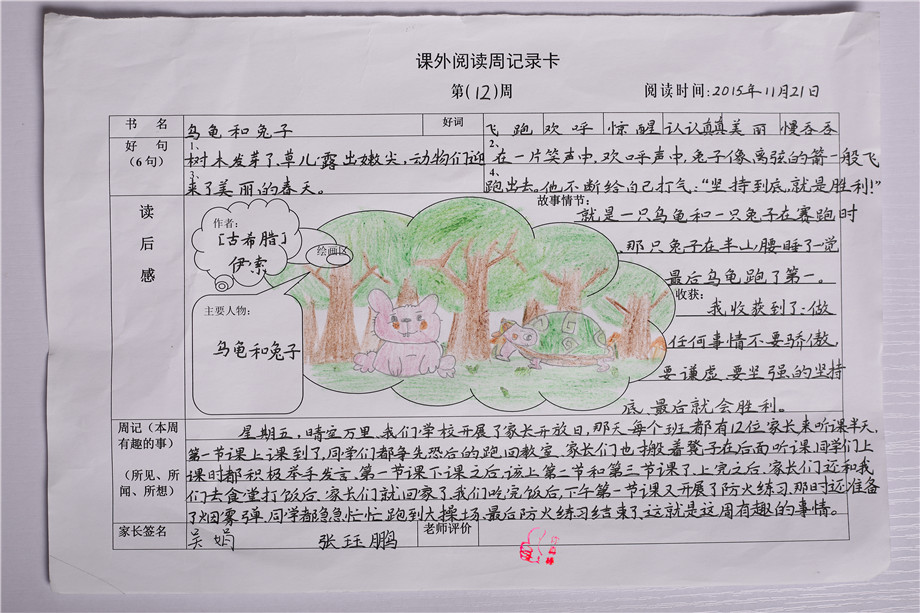 课外阅读周记录卡
第(12)周
阅读时间:2015年11月21日
书 名
乌龟和兔子
好词
飞跑 欢呼 惊醒 认认真真 美丽 慢吞吞
好 句
(6句)
1、
树木发芽了,草儿露出嫩尖,动物们迎
3、
来了美丽的春天。
2、
在一片笑声中,欢呼声中,兔子像离弦的箭一般飞
4、
跑出去。他不断给自己打气:“坚持到底,就是胜利!”
读后感
作者:
[古希腊]
伊索
绘画区
主要人物:
乌龟和兔子
故事情节:
就是一只乌龟和一只兔子在赛跑时
,那只兔子在半山腰睡了一觉
最后乌龟跑了第一。
收获:
我收获到了:做
任何事情不要骄傲,
要谦虚、要坚强的坚持
底、最后就会胜利。
周记(本周
有趣的事)
(所见、所
闻、所想)
星期五,晴空万里、我们学校开展了家长开放日,那天每个班都有12位家长来听课半天,
第一节课上课到了,同学们都争先恐后的跑回教室、家长们也搬着凳子在后面听课,同学们上
课时都积极举手发言、第一节课下课之后,该上第二节和第三节课了,上完之后、家长们还和我
们去食堂打饭后、家长们就回家了,我们吃完饭后,下午第一节课又开展了防火练习、那时还准备
了烟雾弹、同学都急急忙忙跑到大操场、最后防火练习结束了、这就是这周有趣的事情。
家长签名
吴娟 张珏鹏
老师评价